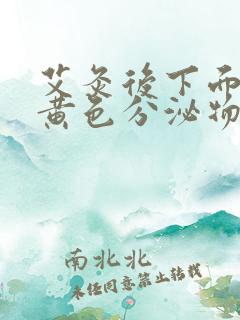 艾灸後下面
黄色分泌物
南北北
未任同意禁止转载